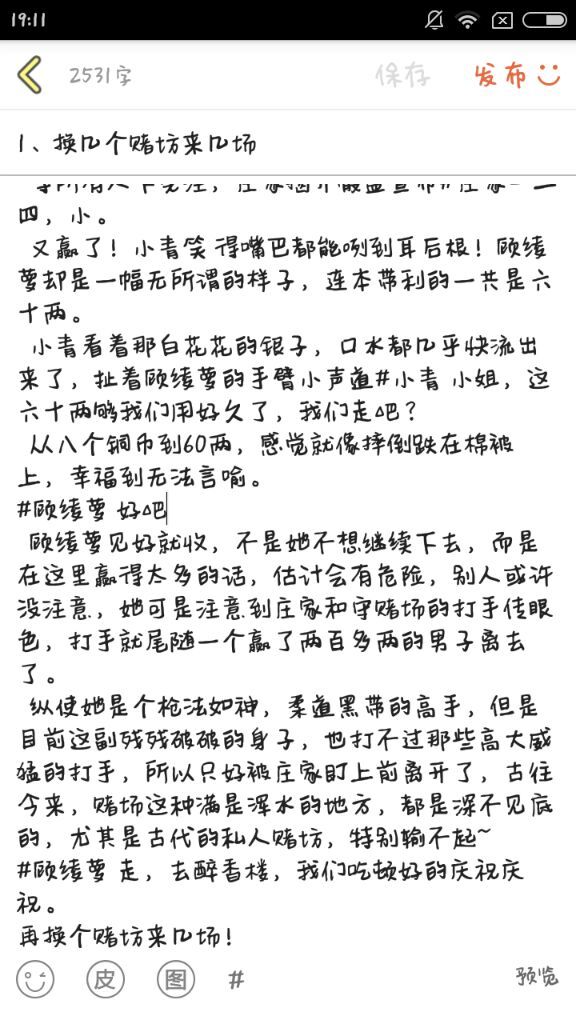 19:11
2531字
保存
发布
1、换几个赌坊来几场
四，小。
又赢了！小青笑得嘴巴都能咧到耳后根！顾绫
萝却是一幅无所谓的样子，连本带利的一共是六
十两。
小青看着那白花花的银子，口水都几乎快流出
来了，扯着顾绫萝的手臂小声道#小青 小姐，这
六十两够我们用好久了，我们走吧？
从八个铜币到60两，感觉就像摔倒跌在棉被
上，幸福到无法言喻。
#顾绫萝 好吧
顾绫萝见好就收，不是她不想继续下去，而是
在这里赢得太多的话，估计会有危险，别人或许
没注意，她可是注意到庄家和守赌场的打手传眼
色，打手就尾随一个赢了两百多两的男子离去
了。
纵使她是个枪法如神，柔道黑带的高手，但是
目前这副残残破破的身子，也打不过那些高大威
猛的打手，所以只好被庄家盯上前离开了，古往
今来，赌场这种满是浑水的地方，都是深不见底
的，尤其是古代的私人赌坊，特别输不起~
#顾绫萝 走，去醉香楼，我们吃顿好的庆祝庆
祝。
再换个赌坊来几场！
皮
图
#
预览